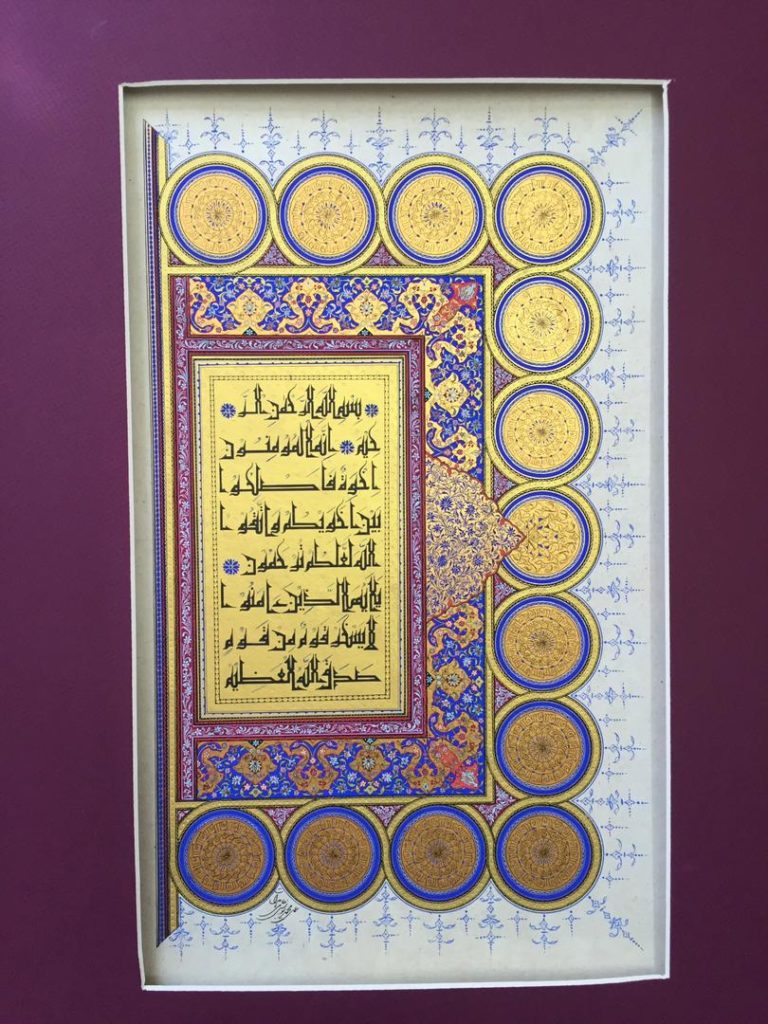 بسم الله الرحمن الر
حيم انما المومنون
اخوة فاصلحوا
بين اخويكم واتقوا
الله لعلكم ترحمون
يايها الذين ءامنوا
لا يسخر قوم من قوم
صدق الله العظيم